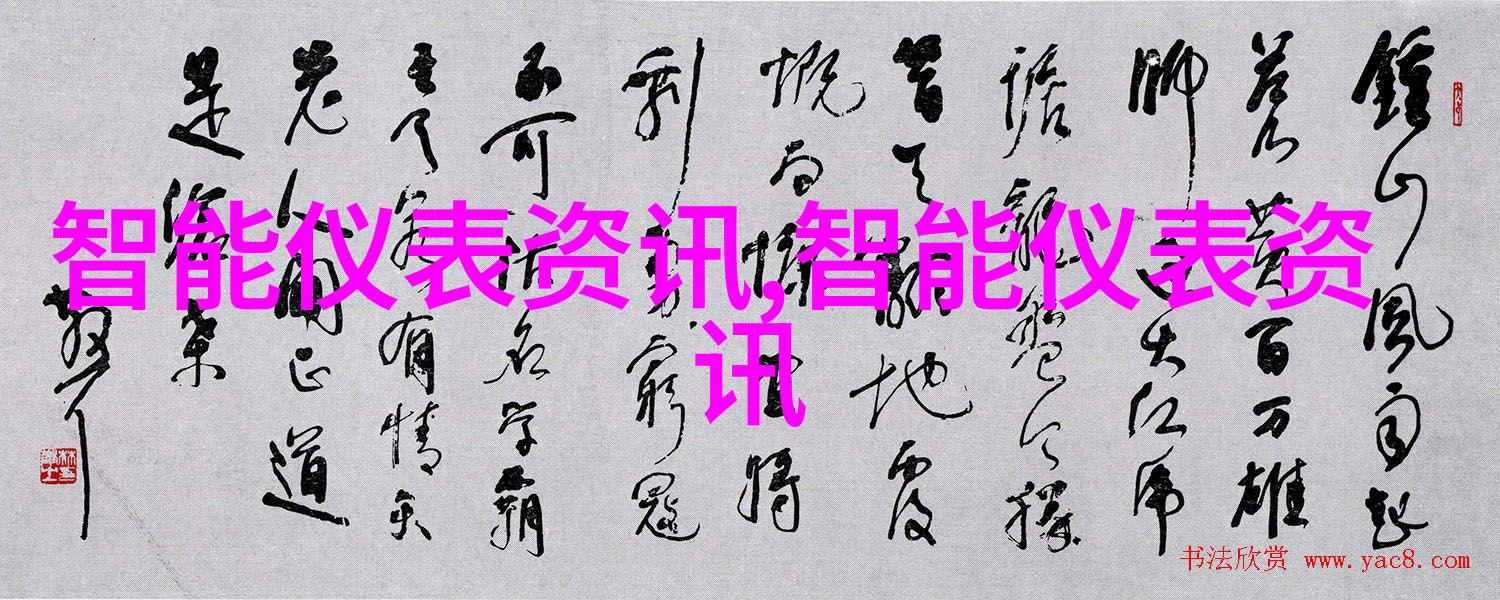 智能仪表资讯,智能仪表资
讯
鍾山風雨起
苍黄百万雄
师过大江虎
踞龍盤今勝
昔天翻地覆
慨而慷宜将
剩勇追窮寇
不可沽名学霸
王天若有情天
老人间正道
是滄桑
书法欣赏 www.yac8.com